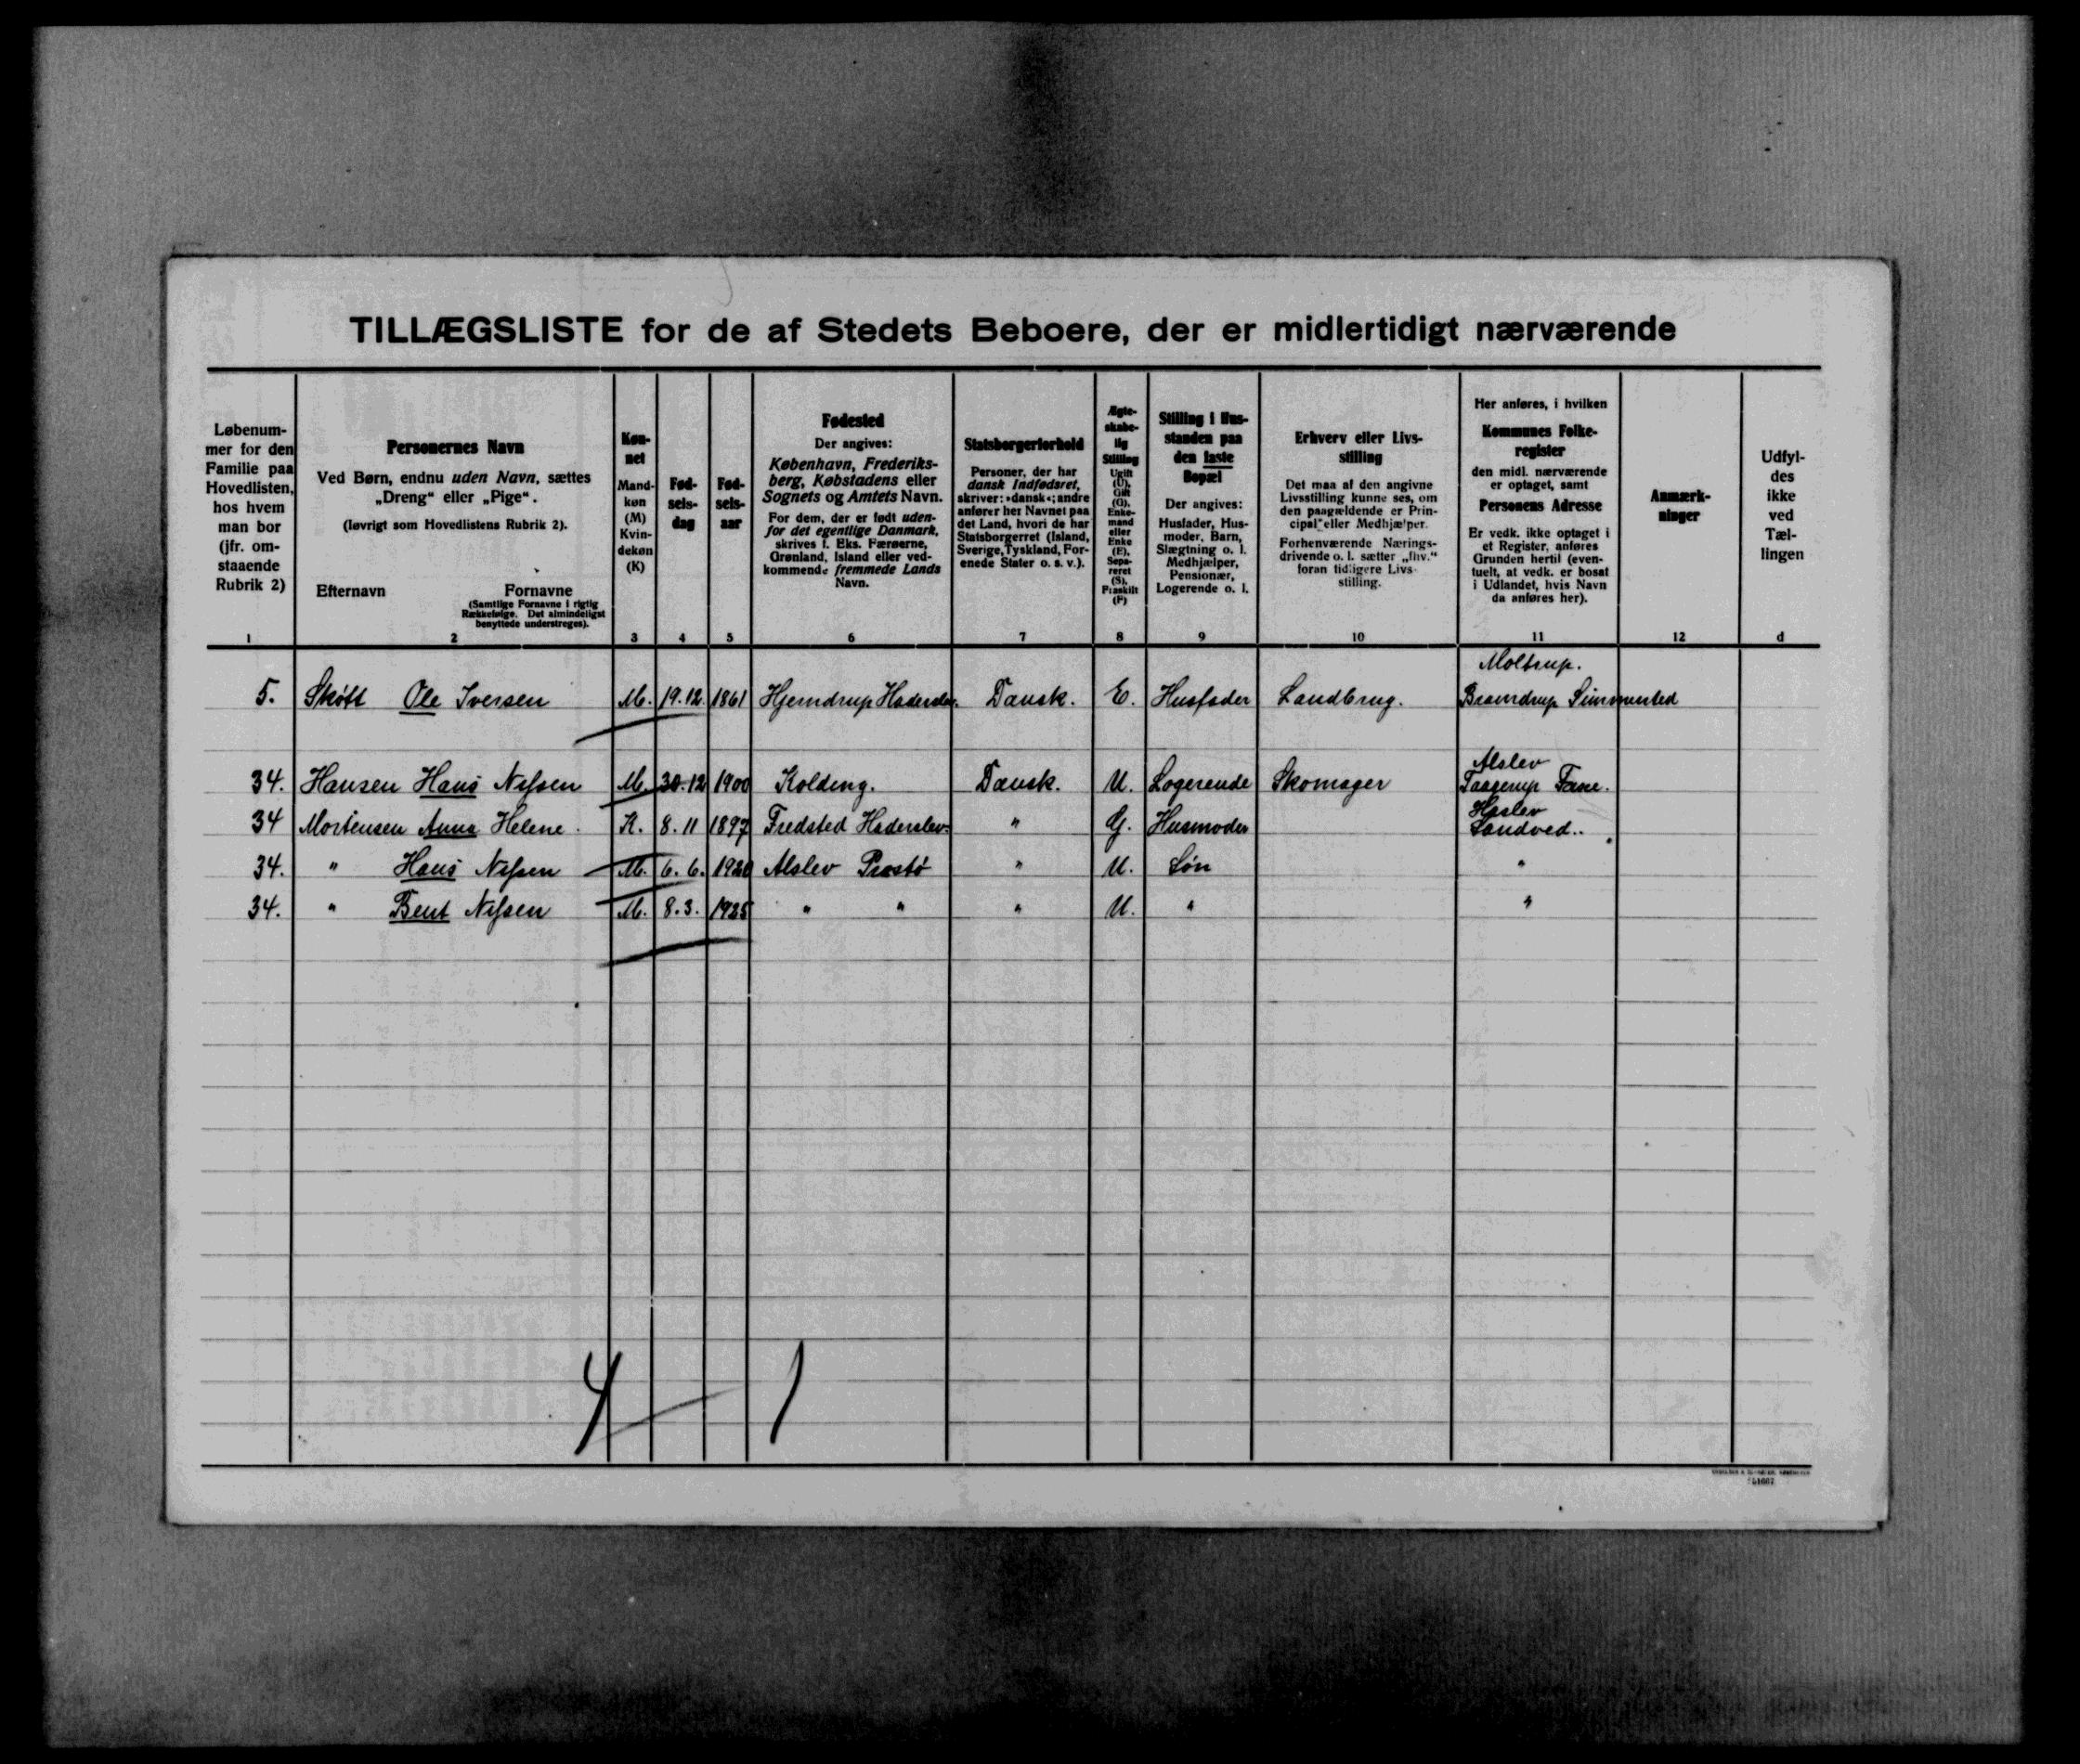 TILLÆGSLISTE for de af Stedets Beboere, der er midlertidigt nærværende
Løbenum-
mer for den
Familie paa
Hovedlisten,
hos hvem
man bor
(jfr. om-
staaende
Rubrik 2)
1
Personernes Navn
Ved Børn, endnu uden Navn, sættes
„Dreng“ eller „Pige“.
(Iøvrigt som Hovedlistens Rubrik 2).
Efternavn Fornavne
(Samtlige Fornavne i rigtig
Rækkefølge. Det almindeligst
benyttede understreges).
2
Køn-
net
Mand-
køn
(M)
Kvin-
dekøn
(K)
3
Fød-
sels-
dag
4
Fød-
sels-
aar
5
Fødested
Der angives:
København, Frederiks-
berg, Købstadens eller
Sognets og Amtets Navn.
For dem, der er født uden-
for det egentlige Danmark,
skrives f. Eks. Færøerne,
Grønland, Island eller ved-
kommende fremmede Lands
Navn.
6
Statsborgerforhold
Personer, der har
dansk Indfødsret,
skriver: »dansk«; andre
anfører her Navnet paa
det Land, hvori de har
Statsborgerret (Island,
Sverige, Tyskland, For-
enede Stater o. s. v.).
7
Ægte-
skabe-
lig
Stilling
Ugift
(U),
Gift
(G),
Enke-
mand
eller
Enke
(E),
Sepa-
reret
(S),
Fraskilt
(F)
8
Stilling i Hus-
standen paa
den faste
Bopæl
Der angives:
Husfader, Hus-
moder, Barn,
Slægtning o. l.
Medhjælper,
Pensionær,
Logerende o. l.
9
Erhverv eller Livs-
stilling
Det maa af den angivne
Livsstilling kunne ses, om
den paagældende er Prin-
cipal eller Medhjælper.
Forhenværende Nærings-
drivende o. l. sætter „fhv.“
foran tidligere Livs-
stilling.
10
Her anføres, i hvilken
Kommunes Folke-
register
den midl. nærværende
er optaget, samt
Personens Adresse
Er vedk. ikke optaget i
et Register, anføres
Grunden hertil (even-
tuelt, at vedk. er bosat
i Udlandet, hvis Navn
da anføres her).
11
Anmærk-
ninger
12
Udfyl-
des
ikke
ved
Tæl-
lingen
d
Moltrup.
5. Skøtt Ole Iversen M. 19.12. 1861 Hjerndrup Haderslev. Dansk. E. Husfader Landbrug. Bramdrup Simmersted
Alslev
34. Hansen Hans Nissen M. 30.12 1900 Kolding. Dansk. U. Logerende Skomager Faxe.
Haslev
34 Mortensen Anna Helene. K. 8.11 1897 Fredsted Haderslev. " G. Husmoder Sandved.
34. " Hans Nissen M. 6.6. 1920 Alslev Præstø " U. Søn "
34. " Bent Nissen M. 8.3. 1925 " " " U. " "
4 — 1
51667